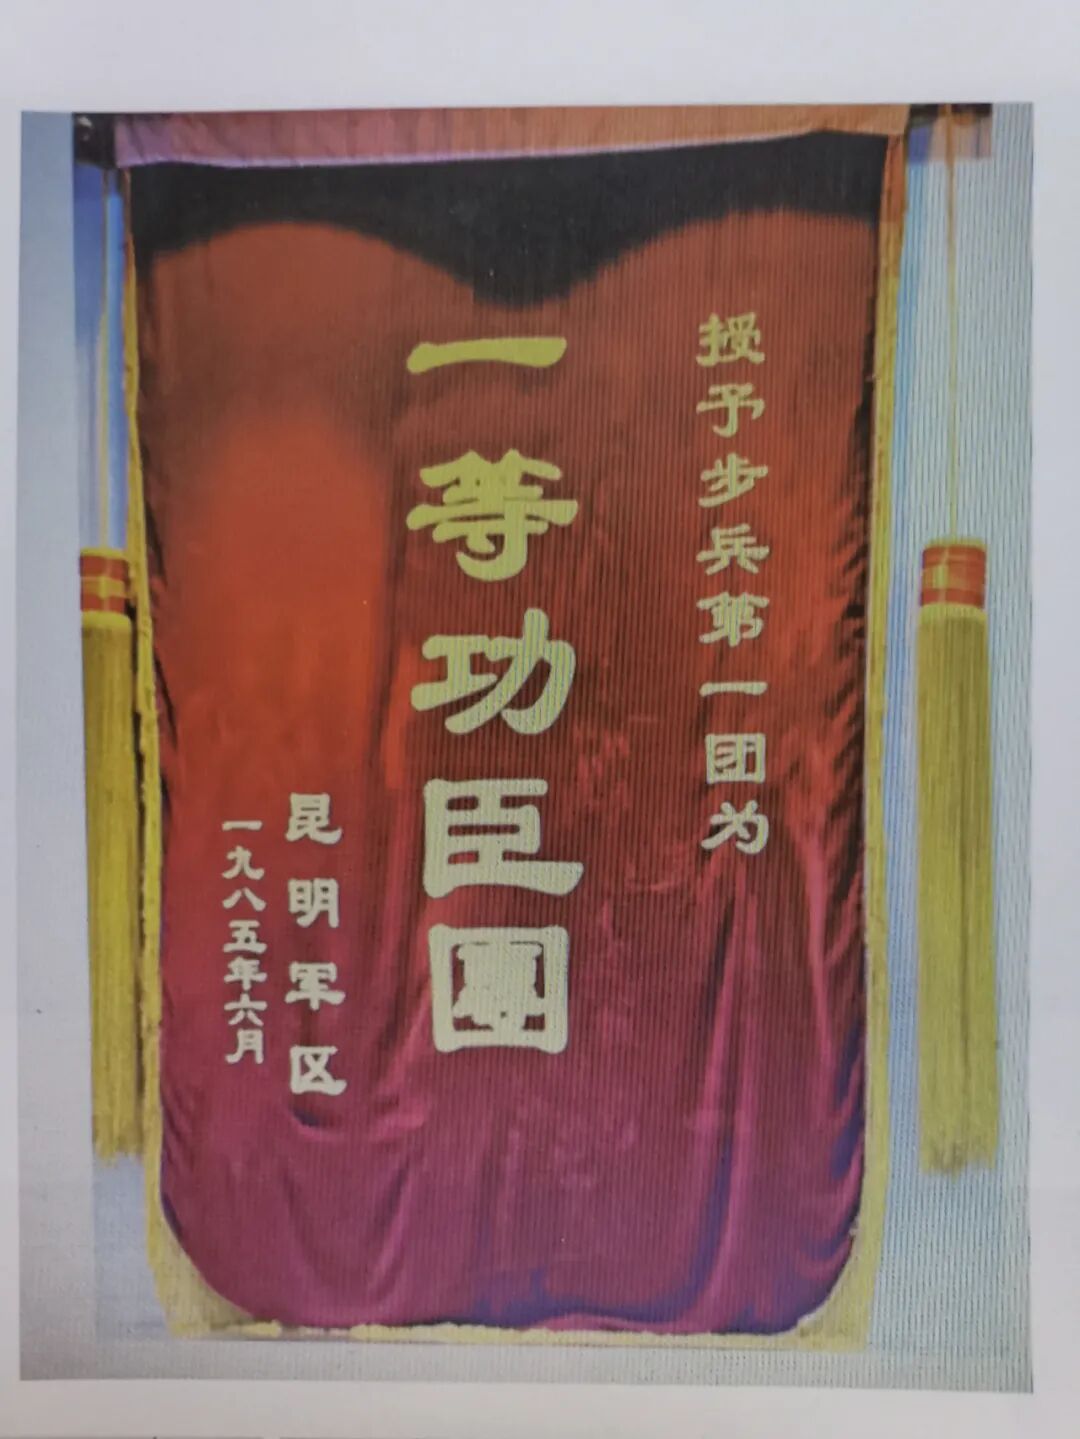 授予步兵第一团为
一等功臣團
昆明军区
一九八五年六月